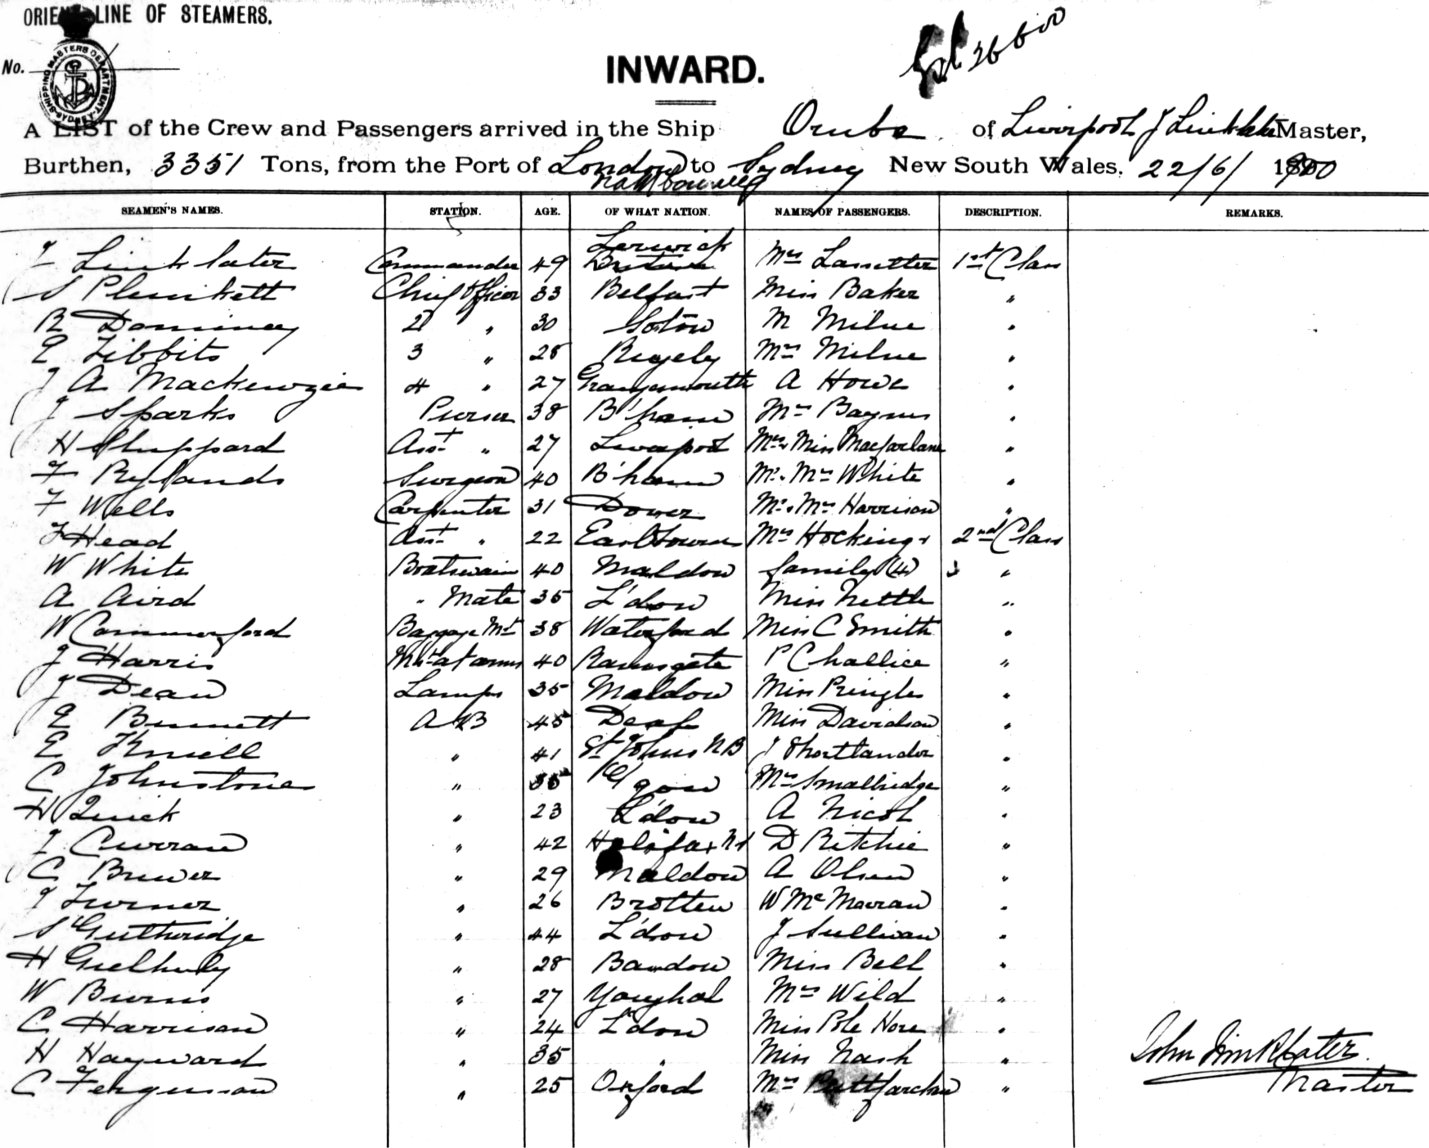 ORIENT LINE OF STEAMERS.
No.
SHIPPING MASTERS DEPARTMENT
INWARD.
A LIST of the Crew and Passengers arrived in the Ship Oruba of Liverpool J Linklater Master,
Burthen, 3351 Tons, from the Port of London to Sydney New South Wales. 22/6/1890
SEAMEN'S NAMES. STATION. AGE. OF WHAT NATION. NAMES OF PASSENGERS. DESCRIPTION. REMARKS.
J Linklater Commander 49 Lerwick Mrs Lassetter 1st Class
S Plunkett Chief Officer 33 Belfast Miss Baker "
R Dominey 2 " 30 Soton M Milne "
E Tibbits 3 " 28 Rugely Mrs Milne "
J A Mackenzie 4 " 27 Grangemouth A Howe "
J Sparks Purser 38 B'ham Mr Baynes "
H Sheppard Asst " 27 Liverpool Mrs & Miss Macfarlane "
F Rylands Surgeon 40 B'ham Mr & Mrs White "
F Wells Carpenter 31 Dover Mr & Mrs Harrison "
J Head Asst " 22 Earlstown Mrs Hocking & 2nd Class
W White Boatswain 40 Maldon family (4) "
A Aird " Mate 35 L'don Miss Nettle "
W Commerford Baggage Mr 38 Waterford Miss C Smith "
J Harris Mstr at arms 40 Ramsgate P Challice "
J Dean Lamps 35 Maldon Miss Pringle "
E Bennett AB 45 Deal Miss Davidson "
E Knill " 41 St Johns NB J Shortlander "
C Johnstone " 35 Mrs Smallridge "
H Quick " 23 L'don A Nicol "
J Curran " 42 Halifax NS D Ritchie "
C Brewer " 29 Maldon A Olsen "
J Turner " 26 Brotten W "
S Guthridge " 44 L'don J Sullivan "
H " 28 Bandon Miss Bell "
W Burns " 27 Youghal Mrs Wild "
C Harrison " 24 L'don Miss Pole Hore "
H Hayward " 35 " Miss Nash "
C Fergusson " 25 Oxford Mrs "
John Linklater
Master